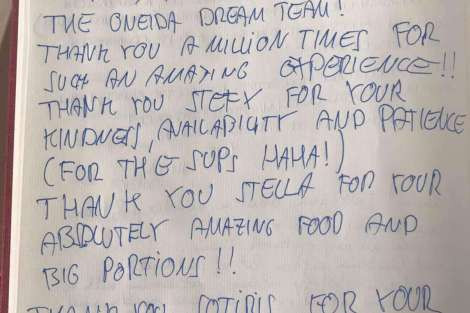 THE ONEIDA DREAM TEAM!
THANK YOU A MILLION TIMES FOR
SUCH AN AMAZING EXPERIENCE!!
THANK YOU STEFY FOR YOUR
KINDNESS, AVAILABILITY AND PATIENCE
(FOR THE SUPS HAHA!)
THANK YOU STELLA FOR YOUR
ABSOLUTELY AMAZING FOOD AND
BIG PORTIONS!!
THANK YOU SOTIRIS FOR YOUR